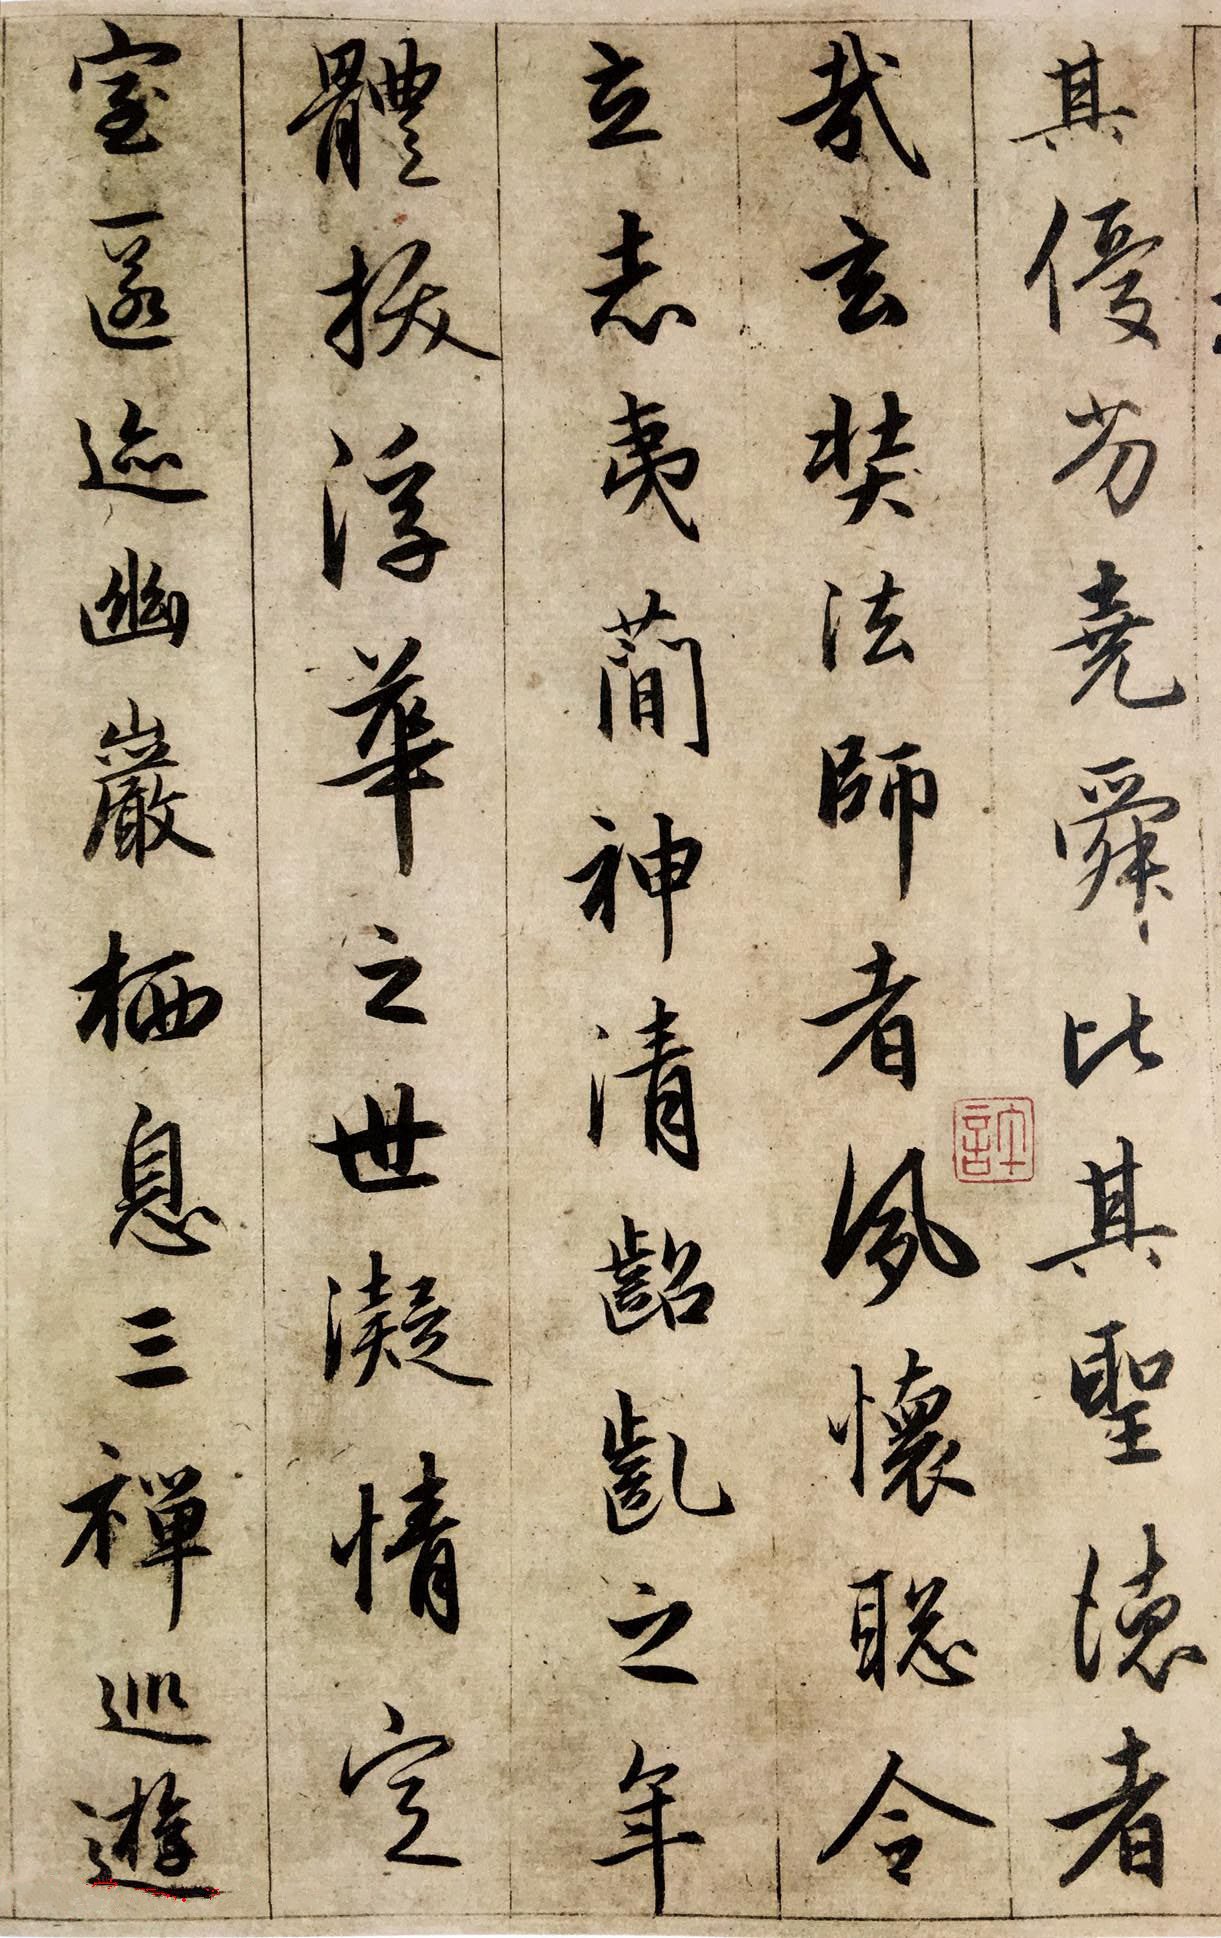 其優劣堯舜比其聖德者
哉玄奘法師者夙懷聡令
立志夷蕳神清齠齔之年
體拔浮華之世凝情定
室匿迹幽巖栖息三禪巡遊